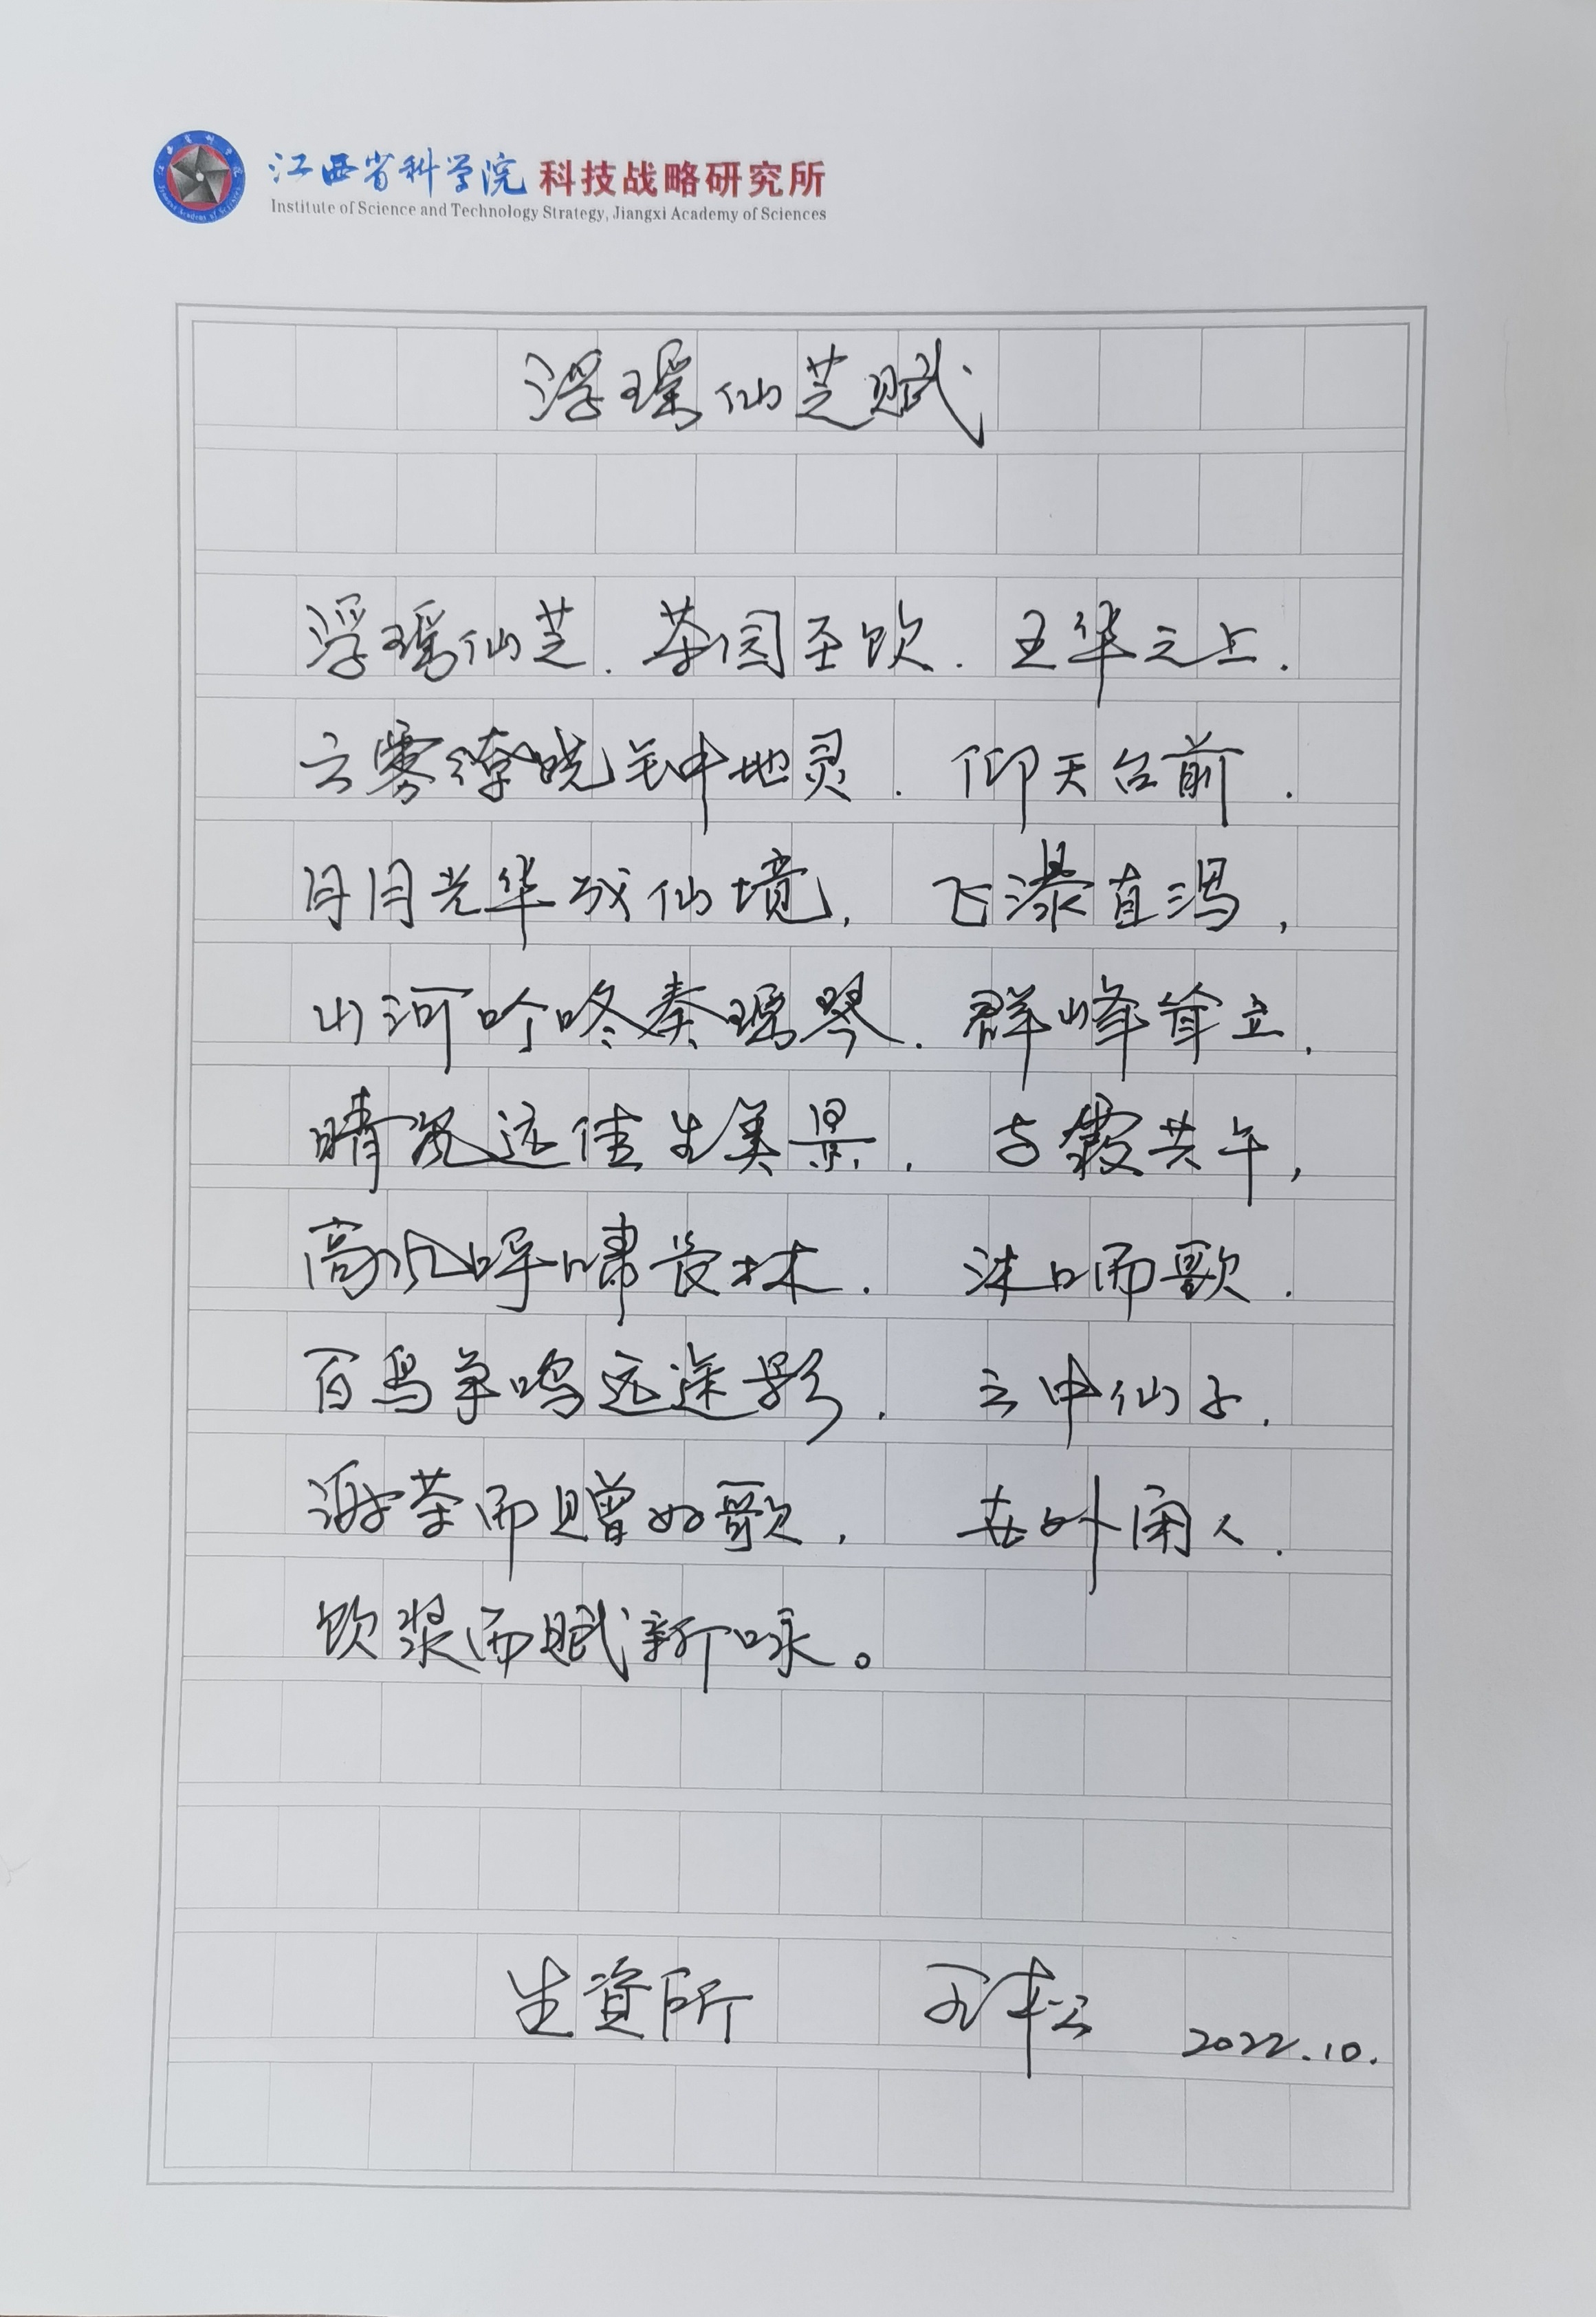 江西省科学院 科技战略研究所
Institute of Science and Technology Strategy, Jiangxi Academy of Sciences
浮瑶仙芝赋
浮瑶仙芝.茶园至饮.玉华之上.
云雾缭晓毛钟地灵.仰天台前.
日月光华成仙境,飞瀑直泻,
山河吟咚奏瑶琴.群峰耸立.
晴岚远佳生美景.与霞共午,
高风呼啸长林.沐日而歌.
百鸟争鸣远迷影.云中仙子.
游茶而赠如歌.在外闲人.
饮浆而赋新咏。
生资所 2022.10.